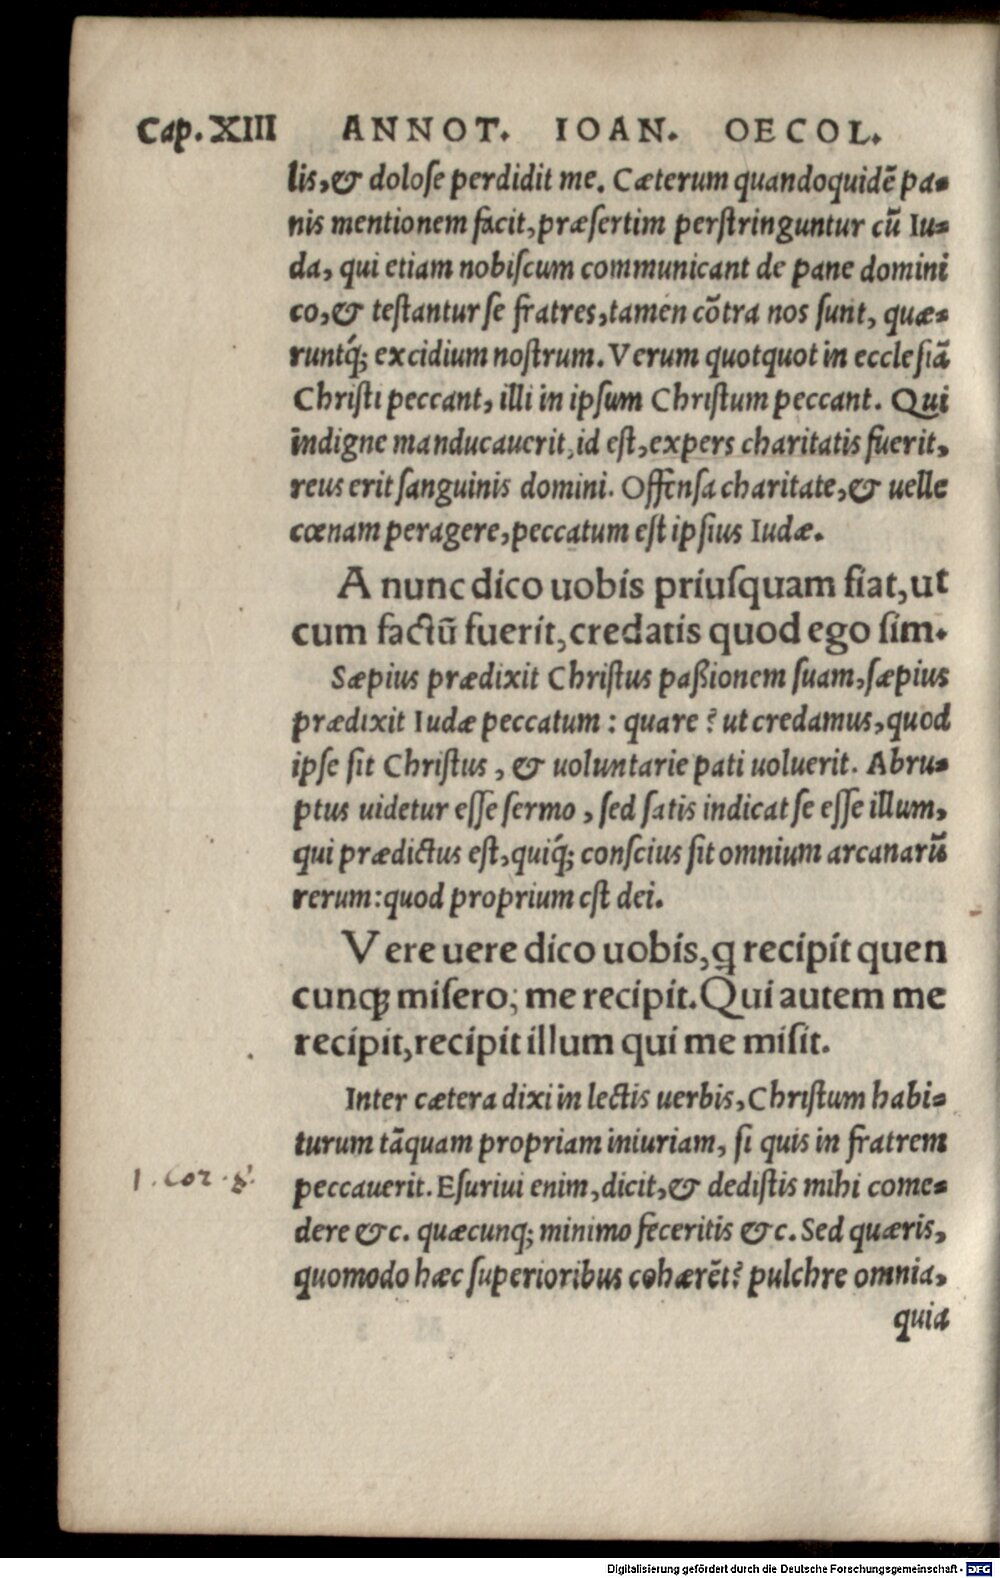 Cap. XIII ANNOT. IOAN. OECOL.
lis, & dolose perdidit me. Cæterum quandoquidẽ pa-
nis mentionem facit, præsertim perstringuntur cũ Iu-
da, qui etiam nobiscum communicant de pane domini
co, & testantur se fratres, tamen cõtra nos sunt, quæ-
runtq́; excidium nostrum. Verum quotquot in ecclesiã
Christi peccant, illi in ipsum Christum peccant. Qui
indigne manducauerit, id est, expers charitatis fuerit,
reus erit sanguinis domini. Offensa charitate, & uelle
cœnam peragere, peccatum est ipsius Iudæ.
A nunc dico uobis priusquam fiat, ut
cum factũ fuerit, credatis quod ego sim.
Sæpius prædixit Christus paßionem suam, sæpius
prædixit Iudæ peccatum: quare? ut credamus, quod
ipse sit Christus, & uoluntarie pati uoluerit. Abru-
ptus uidetur esse sermo, sed satis indicat se esse illum,
qui prædictus est, quiq́; conscius sit omnium arcanarũ
rerum: quod proprium est dei.
Vere uere dico uobis, q̃ recipit quen
cunq; misero, me recipit. Qui autem me
recipit, recipit illum qui me misit.
Inter cætera dixi in lectis uerbis, Christum habi-
turum tãquam propriam iniuriam, si quis in fratrem
1. Cor. 8. peccauerit. Esuriui enim, dicit, & dedistis mihi come-
dere &c. quæcunq; minimo feceritis &c. Sed quæris,
quomodo hæc superioribus cohærẽt? pulchre omnia,
quia
Digitalisierung gefördert durch die Deutsche Forschungsgemeinschaft - DFG